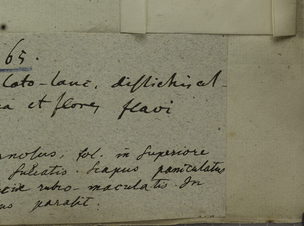 65.
lato-lanc, distichis et
et flores flavi
fol. in superiore
sulcatis. Scapus paniculatus
rubro-maculatis. In